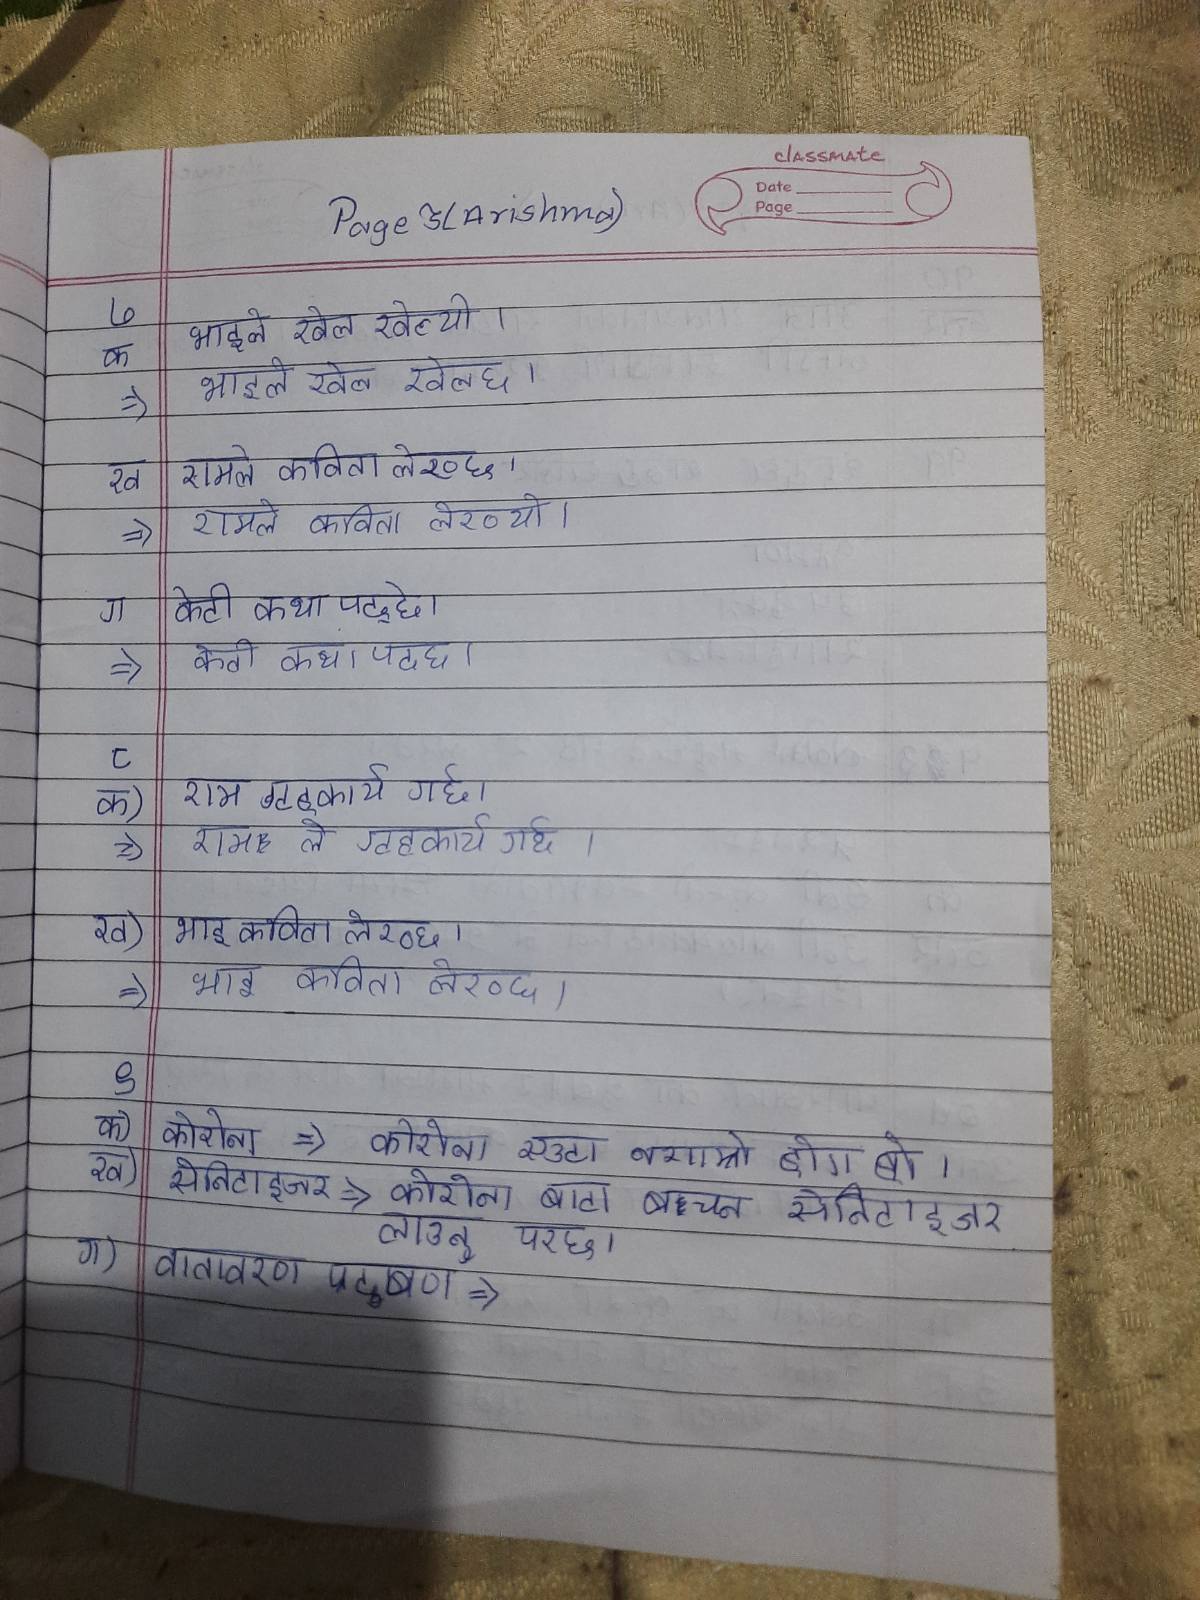 Page 3 (Arishma)
classmate
Date
Page
७
क भाइले खेल खेल्यो ।
⇒ भाइले खेल खेलछ ।
ख रामले कविता लेख्छ ।
⇒ रामले कविता लेख्यो ।
ग केटी कथा पढ्छे।
⇒ केटी कथा पढछ ।
८
क) राम गृहकार्य गर्छ।
⇒ राम ले गृहकार्य गर्छ ।
ख) भाइ कविता लेख्छ ।
⇒ भाइ कविता लेख्छ ।
९
क) कोरोना ⇒ कोरोना एउटा नराम्रो रोग हो ।
ख) सेनिटाइजर ⇒ कोरोना बाटा बच्चन सेनिटाइजर
लाउनु परछ।
ग) वातावरण प्रदुषण ⇒